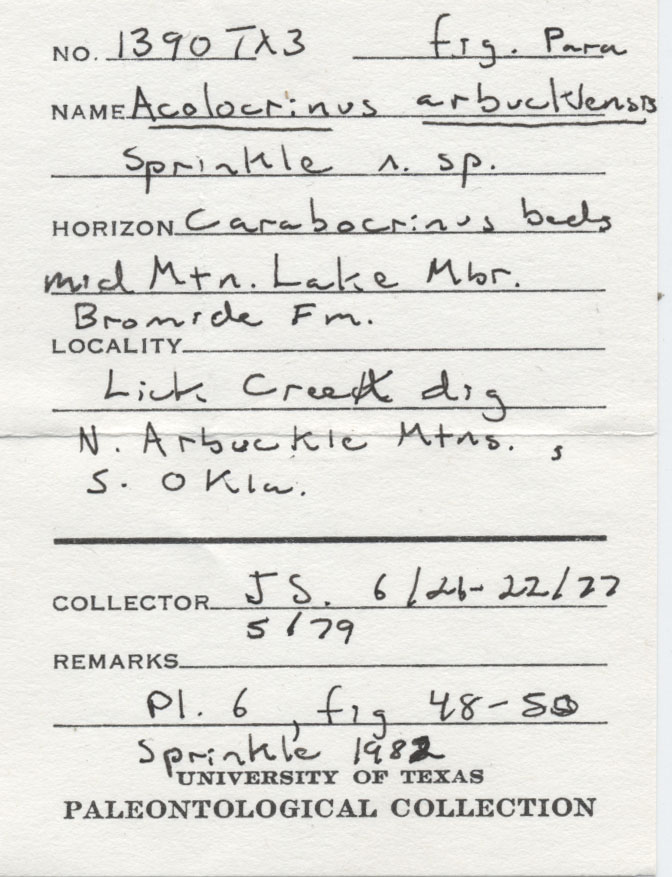 NO. 1390TX3 fig. Para
NAME Acolocrinus arbucklensis
Sprinkle n. sp.
HORIZON Carabocrinus beds
mid Mtn. Lake Mbr.
Bromide Fm.
LOCALITY
Lick Creek dig
N. Arbuckle Mtns.,
S. Okla.
COLLECTOR JS. 6/21-22/77
5/79
REMARKS
Pl. 6, fig 48-50
Sprinkle 1982
UNIVERSITY OF TEXAS
PALEONTOLOGICAL COLLECTION